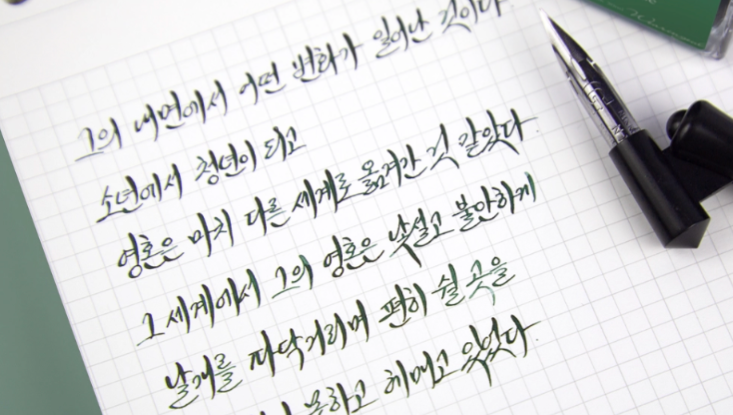 그의 내면에서 어떤 변화가 일어난 것이다
소년에서 청년이 되고
영혼은 마치 다른 세계로 옮겨간 것 같았다.
그 세계에서 그의 영혼은 낯설고 불안하게
날개를 파닥거리며 편히 쉴 곳을
못하고 헤매고 있었다.